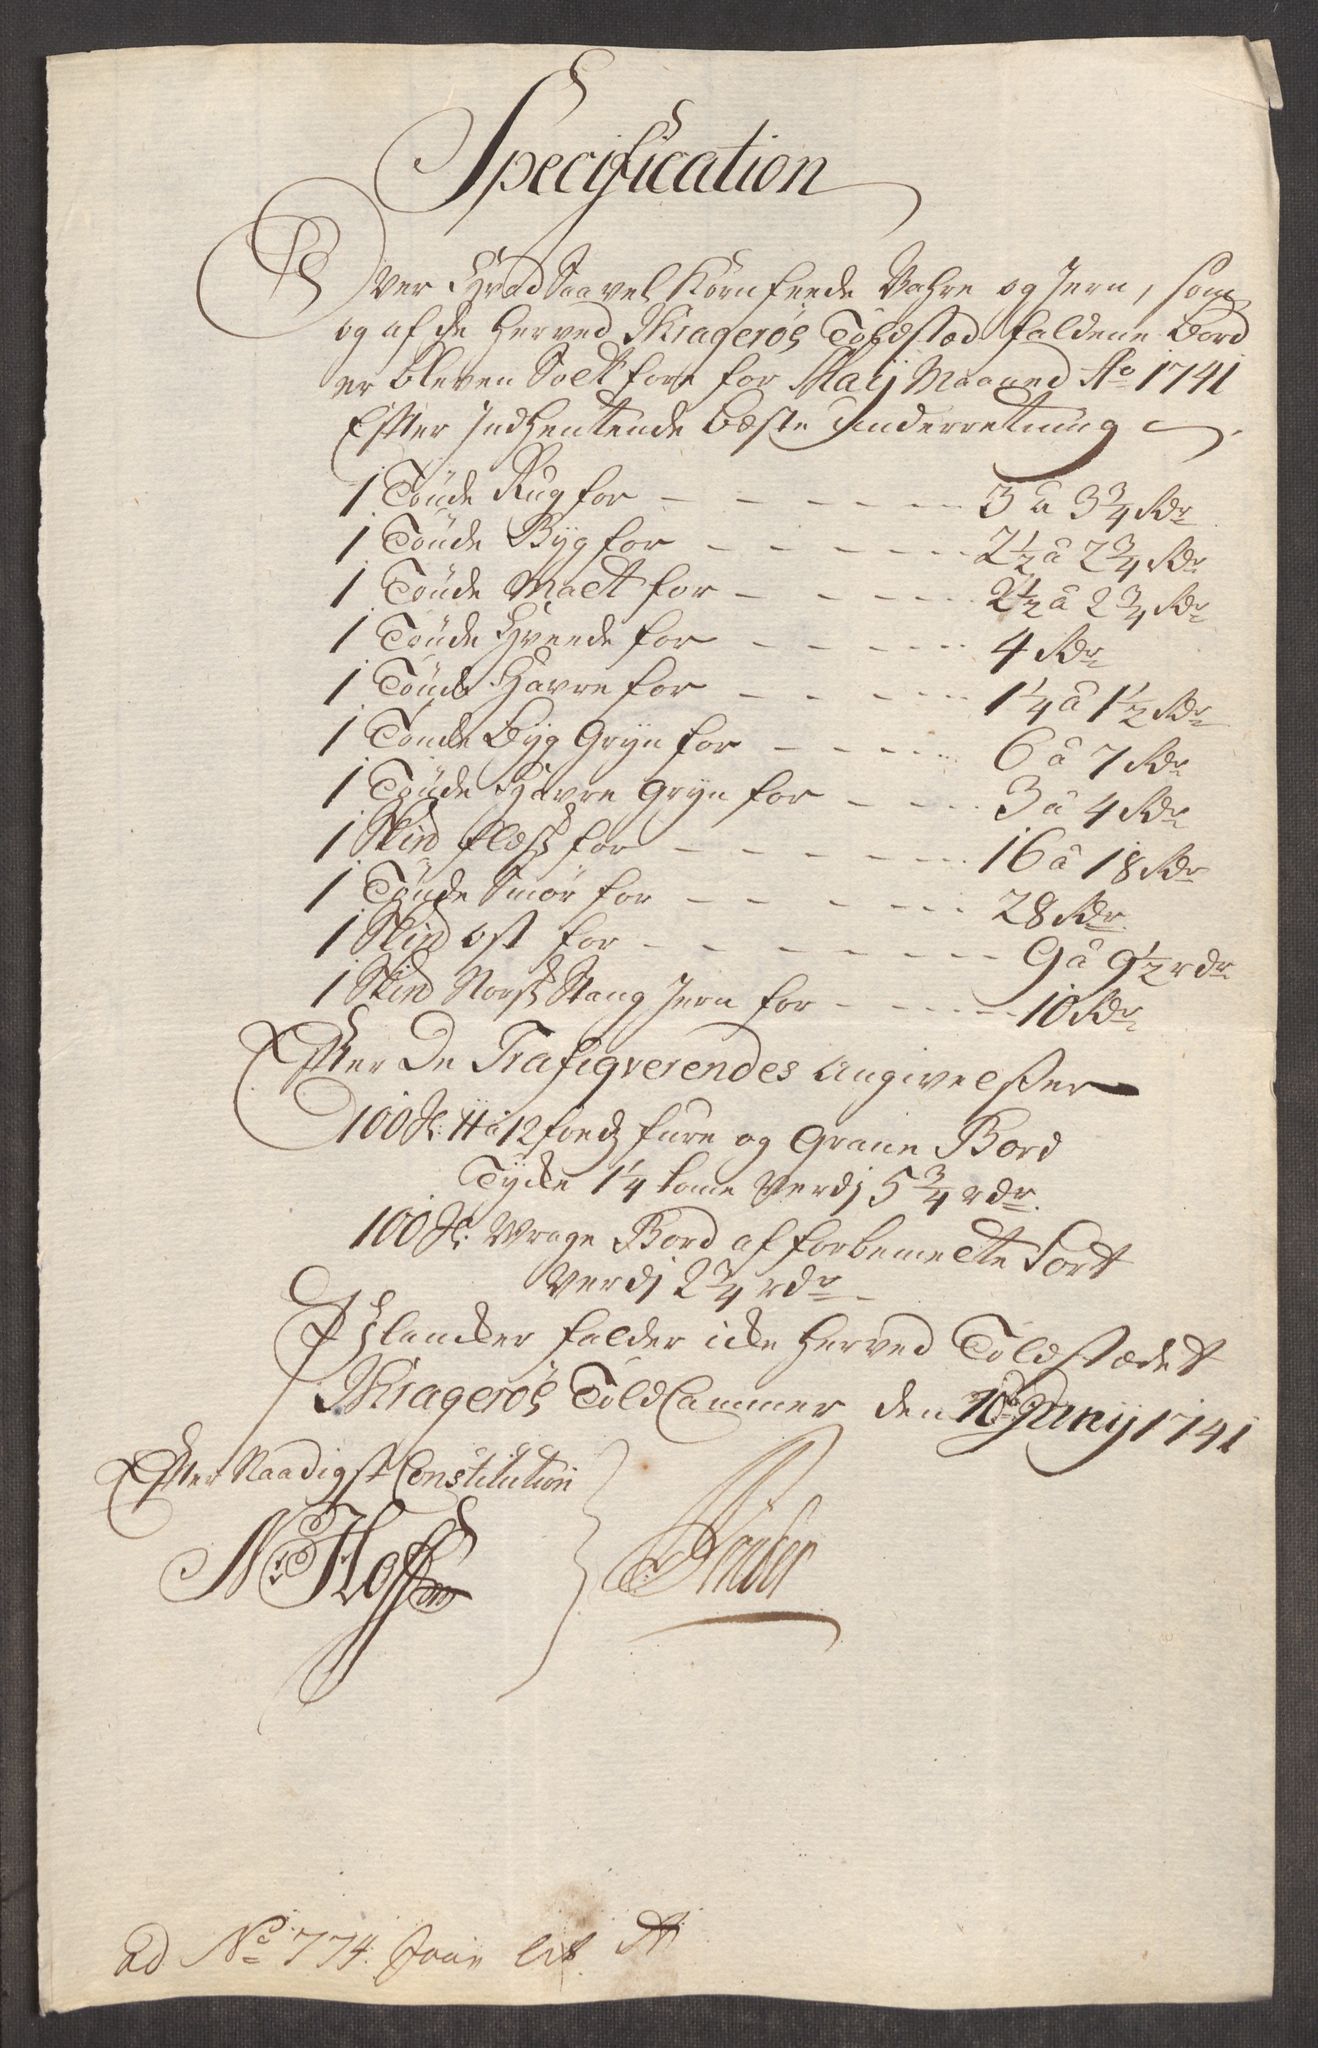 Specification
Over Hvad Saavel Korn feede Vahre og Jern, som
og af de herved Kragerøes Toldsted faldene Bord
er bleven Solt fore for Maij Maaned Ao 1741
Efter Indhentende beste underretning
1 Tønde Rug for - - - - - - 3 a 3 3/4 Rdr
1 Tønde Byg for - - - - - - 2 1/2 a 2 3/4 Rdr
1 Tønde Malt for - - - - - 2 1/2 a 2 3/4 Rdr
1 Tønde Hveede for - - - - - 4 Rdr
1 Tønde Havre for - - - - - 1 1/4 a 1 1/2 Rdr
1 Tønde Byg Gryn for - - - - - 6 a 7 Rdr
1 Tønde Havre Gryn for - - - 3 a 4 Rdr
1 Sk℔ flesk for - - - - - - 16 a 18 Rdr
1 Tønde Smør for - - - - - - 28 Rdr
1 Sk℔ ost for - - - - - - - 9 a 9 1/2 rdr
1 Sk℔ Norsk Stang Jern for - - - - 10 Rdr
Efter De Trafiqverendes Angivelser
100 st: 11 a 12 foeds fure og Grane Bord
Tycke 1 1/4 tome verdj 5 3/4 rdr
100 st: Wrage Bord af forbemelte Sort
verdj 2 3/4 rdr
Plancker falder icke herved Toldstædet
Kragerøes Told Cammer den Junij 1741
Efter Naadigst Constitution
N: Hoff
ad No 774. Lit A